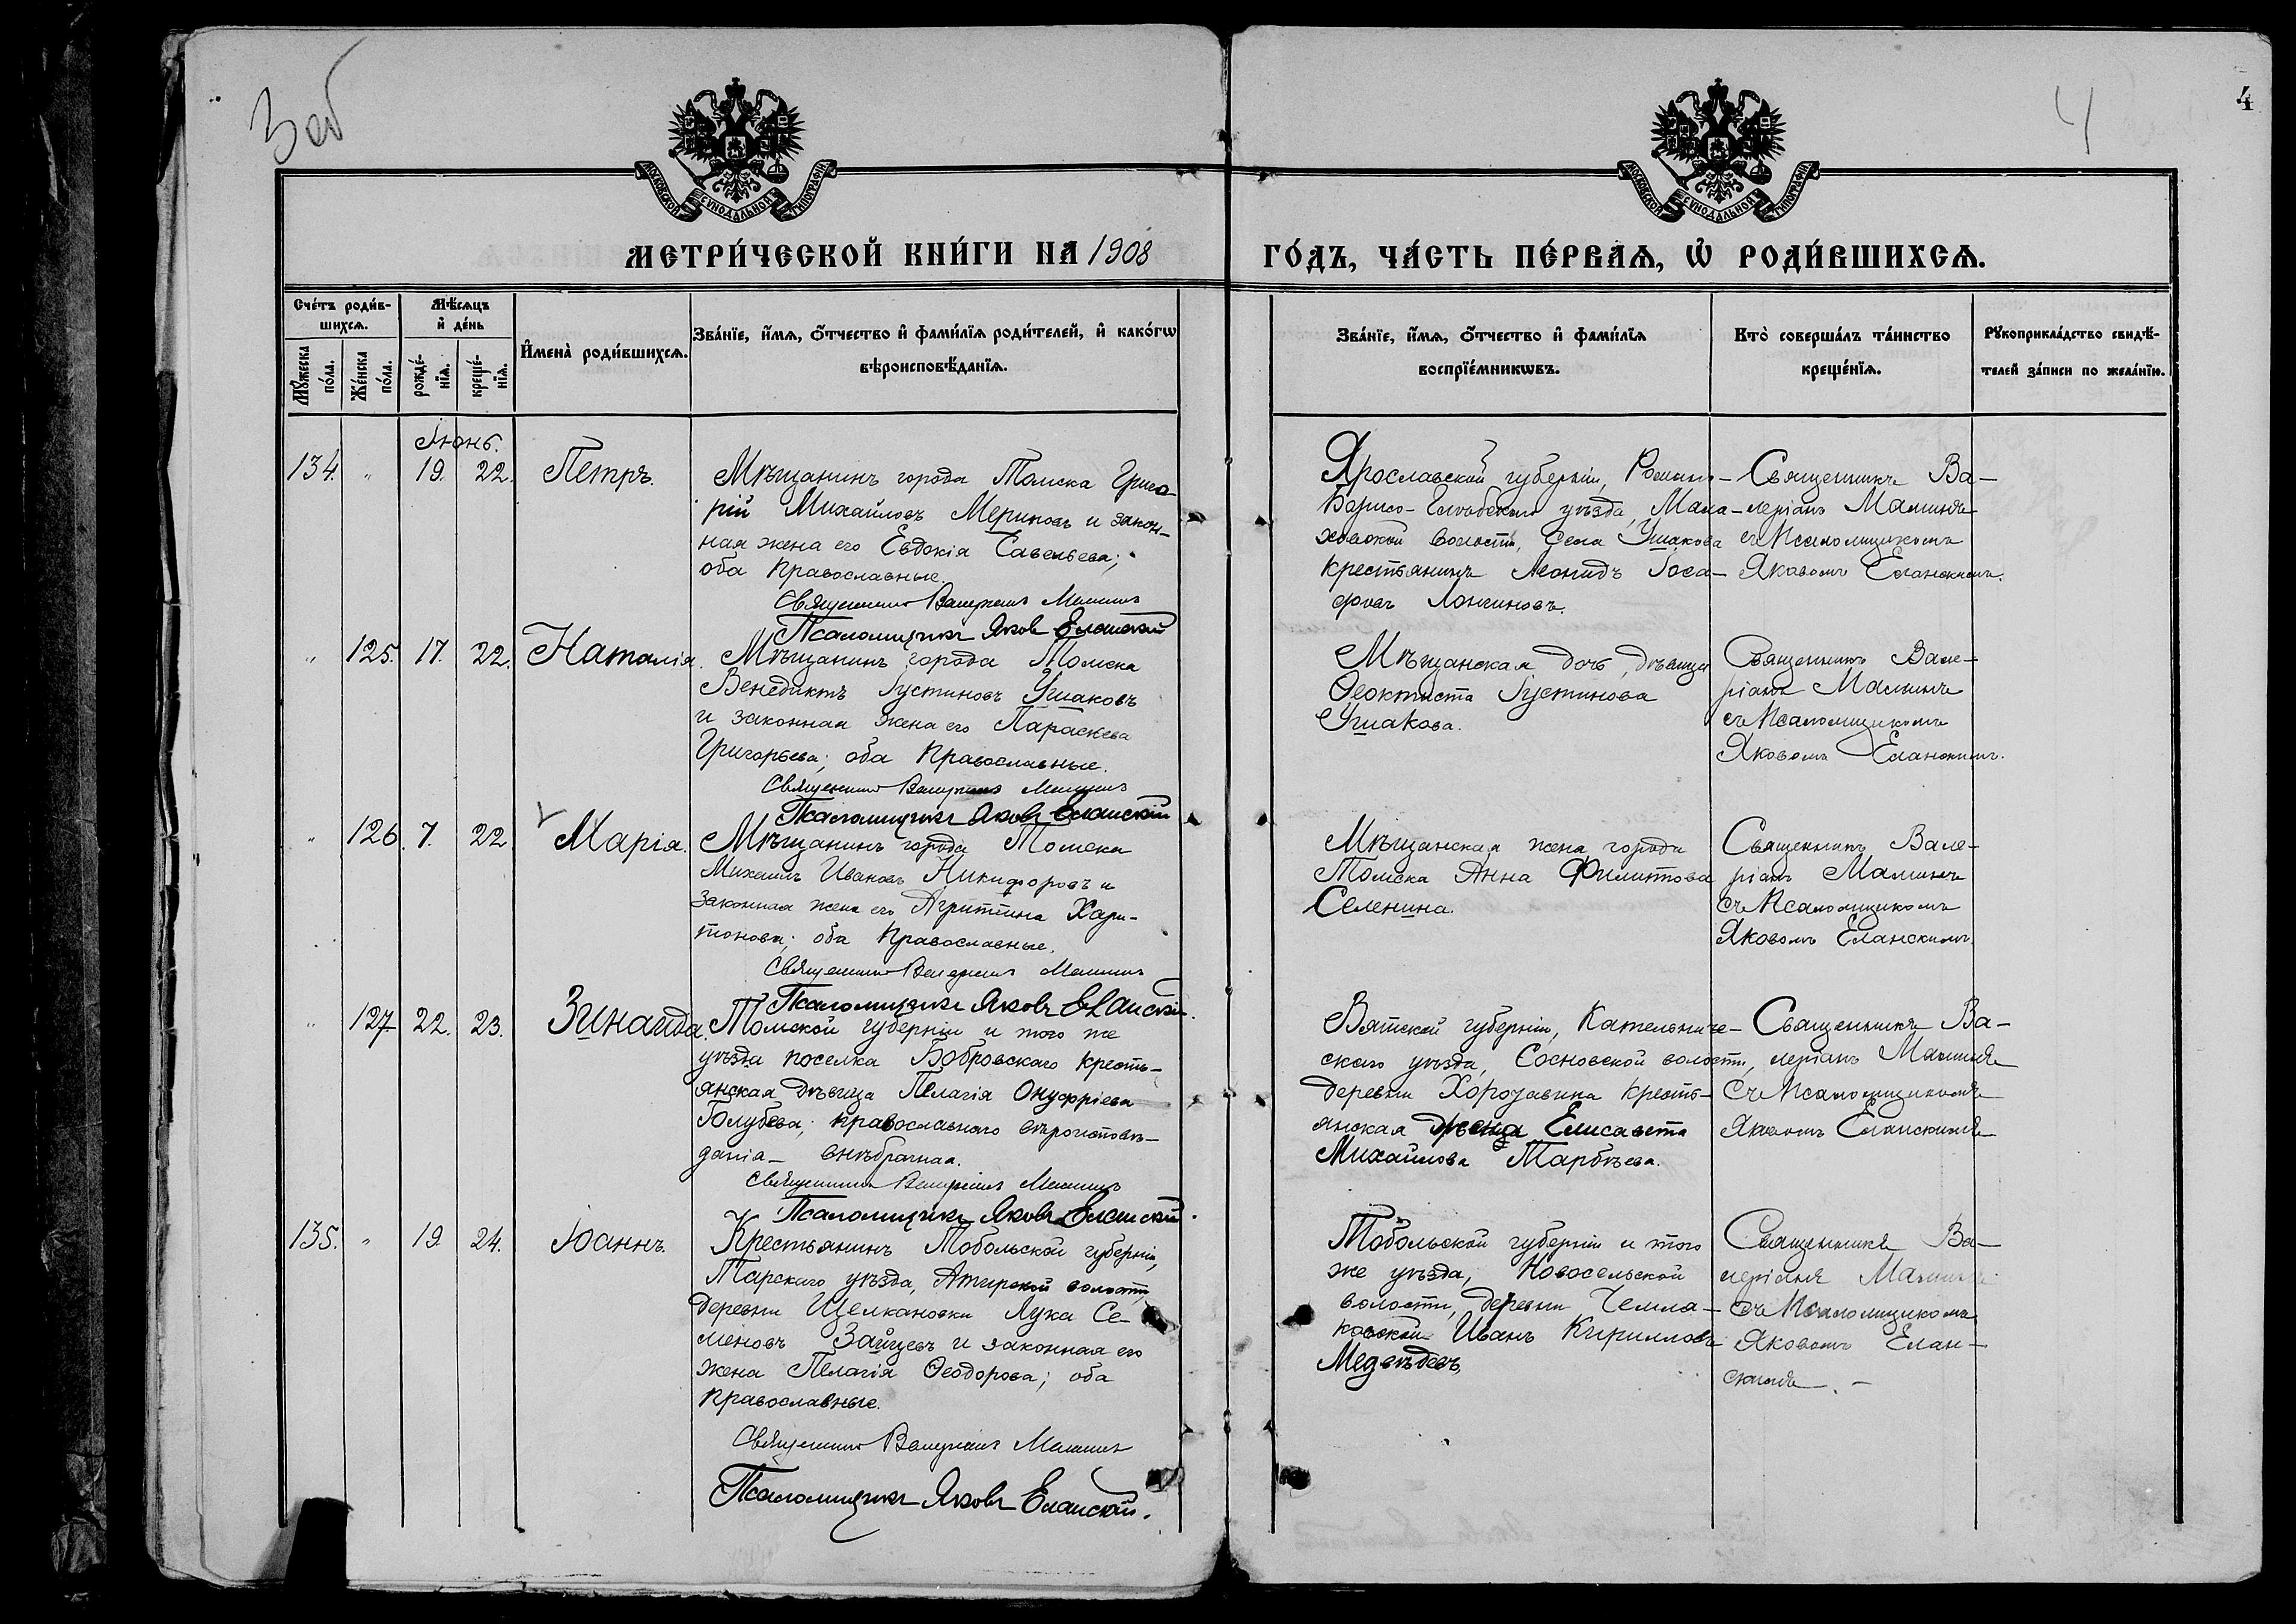 Зоб
4
4
МОСКОВСКОЙ СѴНОДАЛЬНОЙ ТИПОГРАФІИ
МОСКОВСКОЙ СѴНОДАЛЬНОЙ ТИПОГРАФІИ
МЕТРИ́ЧЕСКОЙ КНИ́ГИ НА 1908
ГО́ДЪ, ЧА́СТЬ ПЕ́РВАѦ, Ѡ҆ РОДИ́ВШИХСѦ.
Сче́тъ роди́в-
шихсѧ.
Мꙋ́жеска
по́ла.
Же́нска
по́ла.
Мѣ́сѧцъ
и҆ де́нь
рожде́-
нїѧ.
креще́-
нїѧ.
И҆мена̀ роди́вшихсѧ.
Зва́нїе, и҆́мѧ, ѻ҆́тчество и҆ фами́лїѧ роди́телей, и҆ како́гѡ
вѣроисповѣ́данїѧ.
Зва́нїе, и҆́мѧ, ѻ҆́тчество и҆ фами́лїѧ
воспрїе́мникѡвъ.
Кто̀ соверша́лъ та́инство
креще́нїѧ.
Рꙋкоприкла́дство свидѣ́-
телей за́писи по жела́нїю.
Іюнь.
134. " 19. 22. Петръ.
Мѣщанинъ города Томска Григо-
рій Михайловъ Мериновъ и закон-
ная жена его Евдокія Савельева;
оба Православные.
Священникъ Валеріанъ Маминъ
Псаломщикъ Яковъ Еланскій
Ярославской губерніи, Романо-
Борисо-Глебскаго уѣзда, Мала-
ховской волости, Села Ушакова
крестьянинъ Леонидъ Іоса-
фовъ Лонгиновъ.
Священникъ Ва-
леріанъ Маминъ
съ Псаломщикомъ
Яковомъ Еланскимъ.
" 125. 17. 22. Наталія.
Мѣщанинъ города Томска
Венедиктъ Густиновъ Ушаковъ
и законная жена его Параскева
Григорьева; оба Православные.
Священникъ Валеріанъ Маминъ
Псаломщикъ Яковъ Еланскій
Мѣщанская дочь, дѣвица
Ѳеоктиста Густинова
Ушакова.
Священникъ Вале-
ріанъ Маминъ
съ Псаломщикомъ
Яковомъ Еланскимъ.
" 126. 7. 22 Марія.
Мѣщанинъ города Томска
Михаилъ Ивановъ Никифоровъ и
законная жена его Агриппина Хари-
тонова; оба Православные.
Священникъ Валеріанъ Маминъ
Псаломщикъ Яковъ Еланскій.
Мѣщанская жена города
Томска Анна Филиппова
Селенина.
Священникъ Вале-
ріанъ Маминъ
съ Псаломщикомъ
Яковомъ Еланскимъ.
" 127 22. 23. Зинаида.
Томской губерніи и того же
уѣзда поселка Бобровскаго кресть-
янская дѣвица Пелагія Онуфріева
Голубева; православнаго вѣроисповѣ-
данія — внѣбрачная.
Священникъ Валеріанъ Маминъ
Псаломщикъ Яковъ Еланскій.
Вятской губерніи, Кательниче-
скаго уѣзда, Сосновской волости,
деревни
крестьянская дѣвица Елисавета
Михайлова
Священникъ Ва-
леріанъ Маминъ
съ Псаломщикомъ
Яковомъ Еланскимъ
135. " 19. 24. Іоаннъ.
Крестьянинъ Тобольской губерніи,
Тарскаго уѣзда, Атирской волости,
деревни Щелкановки Лука Се-
меновъ Зайцевъ и законная его
жена Пелагія Ѳеодорова; оба
православные.
Священникъ Валеріанъ Маминъ
Псаломщикъ Яковъ Еланскій.
Тобольской губерніи и того
же уѣзда, Новосельской
волости, деревни
Иванъ Кирилловъ
Медвѣдевъ,
Священникъ Ва-
леріанъ Маминъ
съ Псаломщикомъ
Яковомъ Елан-
скимъ. —